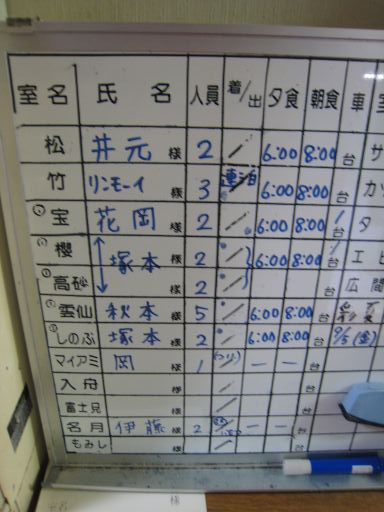 室名 氏名 人員 着/出 夕食 朝食 車
松 井元 様 2 / 6:00 8:00 台 サ
竹 リンモーイ 様 3 連泊 6:00 8:00 台 カ
宝 花岡 様 2 / 6:00 8:00 1台 タ
櫻 塚本 様 2 / 6:00 8:00 台 エビ
高砂 様 2 / 台 広間
雲仙 秋本 様 5 / 6:00 8:00 台
しのぶ 塚本 様 2 / 6:00 8:00 台 9/5(金)
マイアミ 岡 様 1 / ー ー 台
入舟 様 / 台
富士見 様 / 台
名月 伊藤 様 2 / ー ー 台
もみじ 様 / 台
様